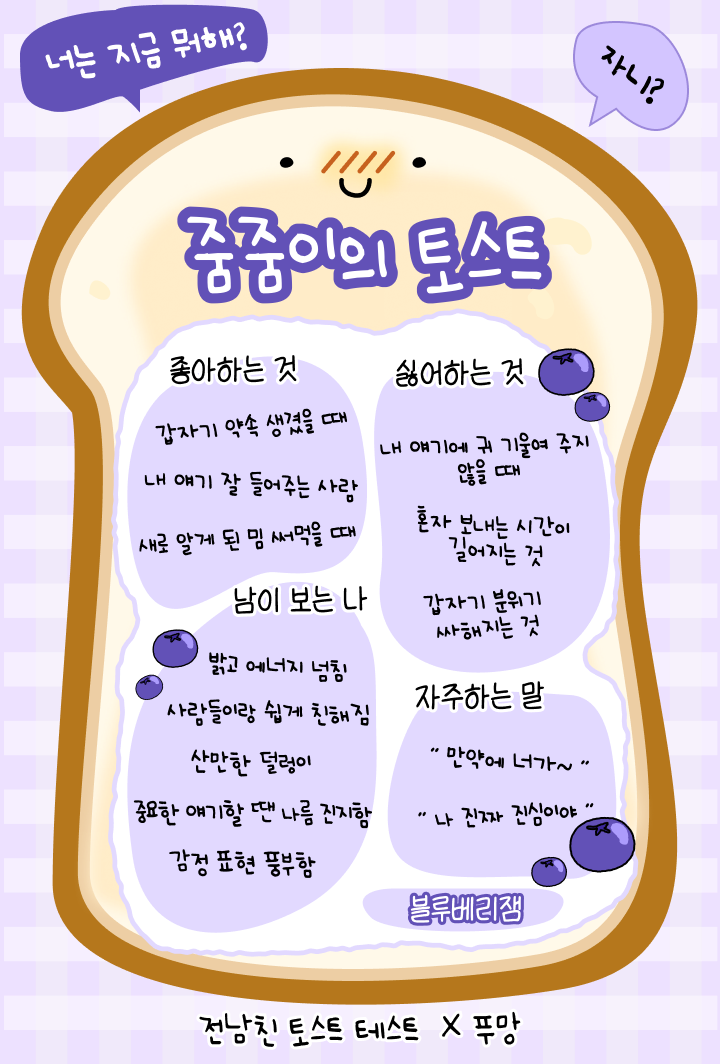 너는 지금 뭐해?
자니?
줌줌이의 토스트
좋아하는 것
갑자기 약속 생겼을 때
내 얘기 잘 들어주는 사람
새로 알게 된 밈 써먹을 때
싫어하는 것
내 얘기에 귀 기울여 주지
않을 때
혼자 보내는 시간이
길어지는 것
갑자기 분위기
싸해지는 것
남이 보는 나
밝고 에너지 넘침
사람들이랑 쉽게 친해짐
산만한 덜렁이
중요한 얘기할 땐 나름 진지함
감정 표현 풍부함
자주하는 말
" 만약에 너가~ "
" 나 진짜 진심이야 "
블루베리잼
전남친 토스트 테스트 X 푸망